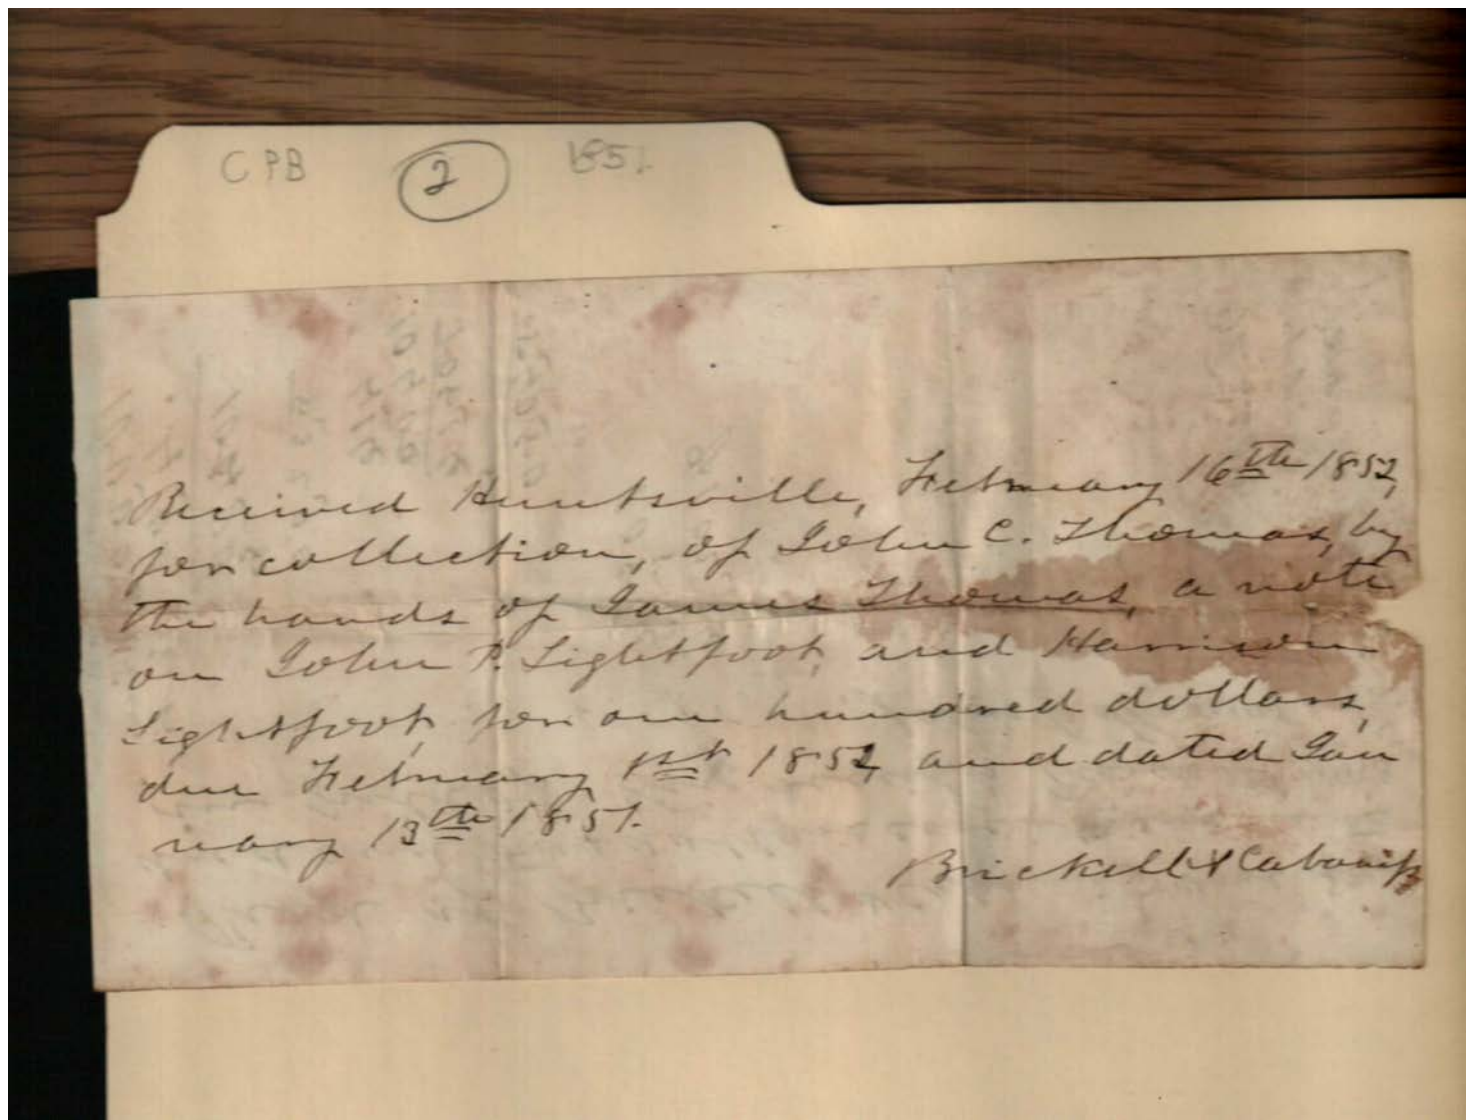 CPB 2 1851
Received Huntsville, February 16th 1852,
for collection, of John C. Thomas, by
the hands of James Thomas, a note
on John P. Lightfoot, and Harrison
Lightfoot, for one hundred dollars,
due February 1st 1852, and dated Jan
uary 13th 1851.
Brickell & Cabaniss